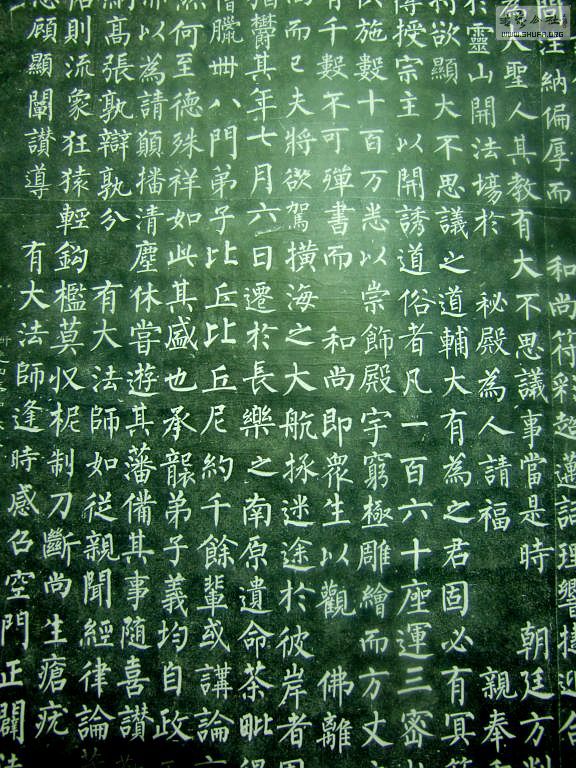 注納偏厚而 和尚符彩超邁詞理響捷迎合
為大聖人其教有大不思議事當是時 朝廷方削
於靈山開法場於 秘殿為人請福 親奉
利欲顯大不思議之道輔大有為之君固必有冥符
傳授宗主以開誘道俗者凡一百六十座運三密
供施數十百万悉以崇飾殿宇窮極雕繪而方丈
有千數不可殫書而 和尚即衆生以觀 佛離
尚而已夫將欲駕橫海之大航拯迷途於彼岸者固
指鬱其年七月六日遷於長樂之南原遺命荼毗得
僧臘卌八門弟子比丘比丘尼約千餘輩或講論
然何至德殊祥如此其盛也承襲弟子義均自政
以為請願播清塵休嘗遊其藩備其事隨喜讚
網高張孰辯孰分 有大法師如從親聞經律論
則流象狂猿輕鈎檻莫収柅制刀斷尚生瘡疣
思顧顯闡讚導 有大法師逢時感召空門正闢法
WWW.SHUFA.ORG